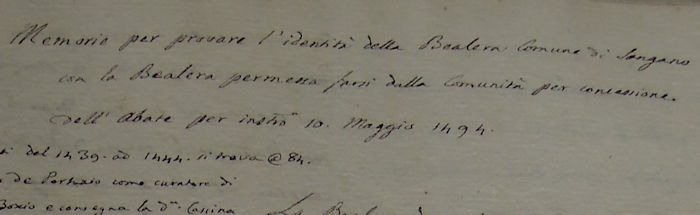 Memorie per provare l'identità della Bealera Comune di Sangano
con la Bealera permessa farsi dalla Comunità per concessione
dell'Abate per instro 10. Maggio 1494.
del 1439. ad 1444. si trova @ 84.
de Portusio come curatore di
Boxio e consegna la dta Cassina La